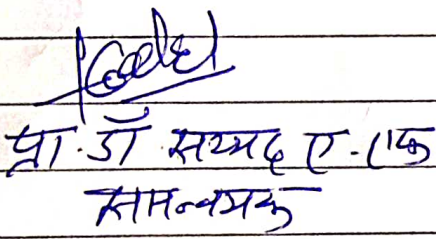 प्रा. डॉ. सय्यद ए. एफ
समन्वयक